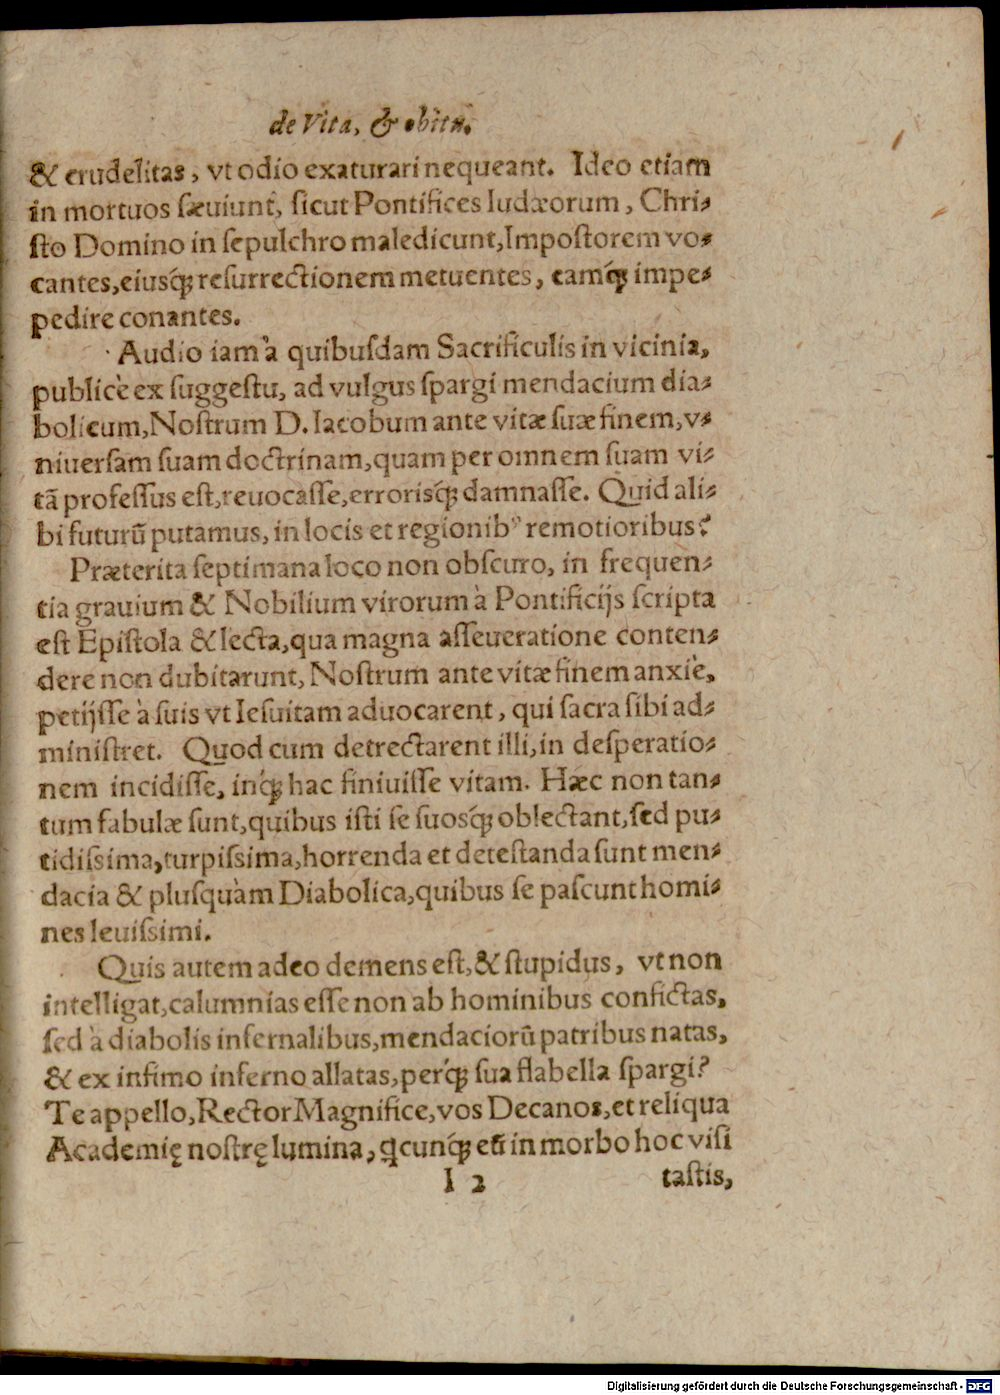 de Vita, & obitu.
& crudelitas, vt odio exaturari nequeant. Ideo etiam
in mortuos sæuiunt, sicut Pontifices Iudæorum, Chri-
sto Domino in sepulchro maledicunt, Impostorem vo-
cantes, eiusq́; resurrectionem metuentes, eamq́; impe-
pedire conantes.
Audio iam à quibusdam Sacrificulis in vicinia,
publicè ex suggestu, ad vulgus spargi mendacium dia-
bolicum, Nostrum D. Iacobum ante vitæ suæ finem, v-
niuersam suam doctrinam, quam per omnem suam vi-
tā professus est, reuocasse, errorisq́; damnasse. Quid ali-
bi futurū putamus, in locis et regionibꝰ remotioribus?
Præterita septimana loco non obscuro, in frequen-
tia grauium & Nobilium virorum à Pontificijs scripta
est Epistola & lecta, qua magna asseueratione conten-
dere non dubitarunt, Nostrum ante vitæ finem anxiè,
petijsse à suis vt Iesuitam aduocarent, qui sacra sibi ad-
ministret. Quod cum detrectarent illi, in desperatio-
nem incidisse, inq́; hac finiuisse vitam. Hæc non tan-
tum fabulæ sunt, quibus isti se suosq́; oblectant, sed pu-
tidissima, turpissima, horrenda et detestanda sunt men-
dacia & plusquàm Diabolica, quibus se pascunt homi-
nes leuissimi.
Quis autem adeo demens est, & stupidus, vt non
intelligat, calumnias esse non ab hominibus confictas,
sed à diabolis infernalibus, mendaciorū patribus natas,
& ex infimo inferno allatas, perq́; sua flabella spargi?
Te appello, Rector Magnifice, vos Decanos, et reliqua
Academię nostrę lumina, qcunq́; eū in morbo hoc visi
I 2 tastis,
Digitalisierung gefördert durch die Deutsche Forschungsgemeinschaft - DFG